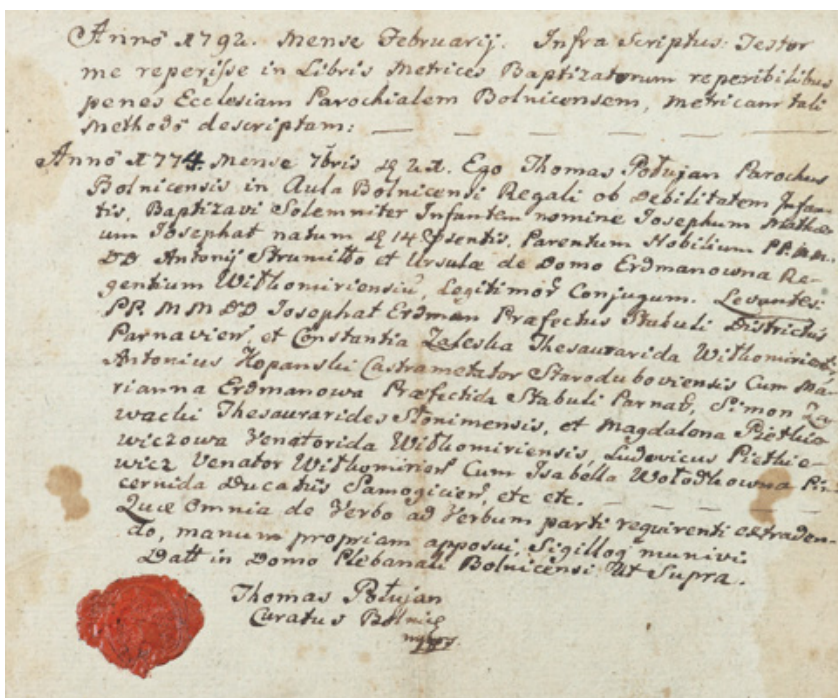 Anno 1792. Mense Februarij. Infra Scriptus Testor
me reperisse in Libris Metrices Baptizatorum reperibilibus
penes Ecclesiam Parochialem Bolnicensem, Metricam tali
Methodô descriptam: — — — — —
Anno 1774. Mense 7bris Ego Thomas Połujan Parochus
Bolnicensis in Aula Bolnicensi Regali ob Debilitatem Infan
tis, Baptizavi Solemniter Infantem nomine Josephum Mathae
um Josephat natum 14 Parentum Nobilium PP. MM.
DD Antonij Strumiłło et Ursulæ de Domo Erdmanowna Re-
gentium Wiłkomiriensiū, Legitimor Conjugum. Levantes:
PP. MM DD Josephat Erdman Præfectus Stabuli Districtus
Parnavien, et Constantia Zaleska Thesaurarida Wiłkomirien,
Antonius Kopanski Castrametator Staroduboviensis Cum Ma-
rianna Erdmanowa Præfectida Stabuli Parnaṽ, Simon Za
wacki Thesaurarides Słonimensis, et Magdalona Pietkie
wiczowa Venatorida Wiłkomiriensis, Ludovicus Pietkie-
wicz Venator Wiłkomirien Cum Isabella Wołodkowna Pin
cernida Ducatûs Samogicien, etc etc. — — — —
Quæ Omnia de Verbo ad Verbum parti requirenti extraden-
do, manum propriam apposui, Sigilloq munivi.
Datt in Domo Plebanali Bolnicensi Ut Supra.
Thomas Połujan
Curatus Bolnic